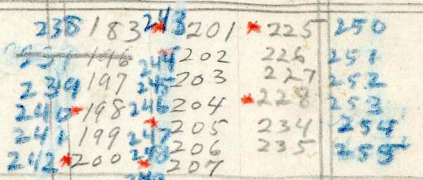 238 183 243 201 * 225 250
196 244 202 226 251
239 197 245 203 227 252
240 * 198 246 204 * 228 253
241 199 247 205 234 254
242 * 200 248 206 235 255
207